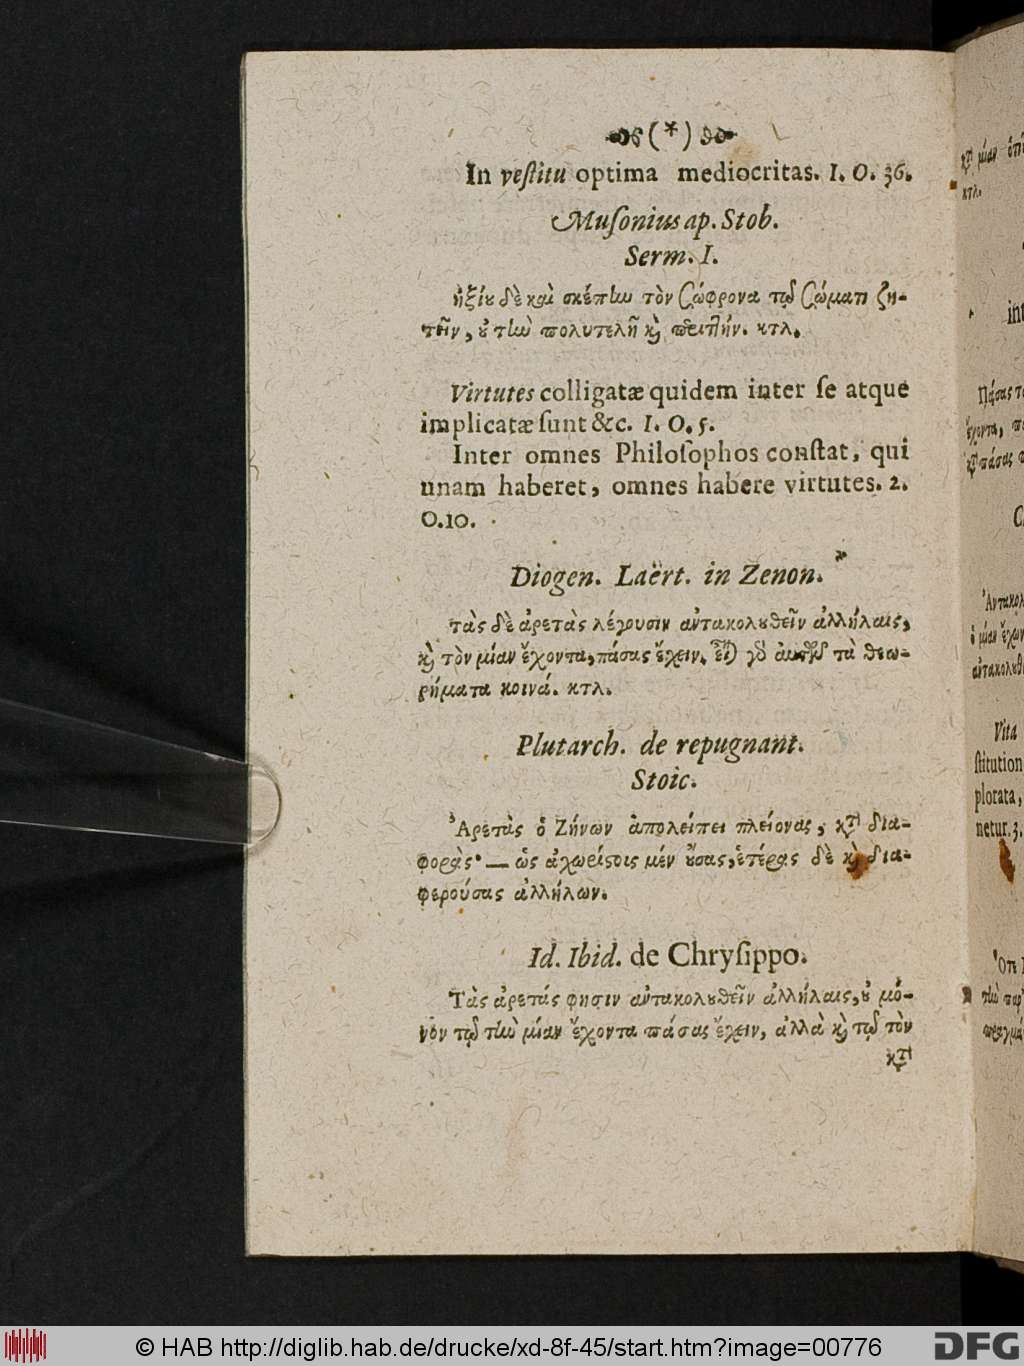 (*)
In veſtitu optima mediocritas. I. O. 36.
Muſonius ap. Stob.
Serm. I.
ἠξίου δὲ καὶ σκέπην τὸν σώφρονα τῷ σώματι ζη-
τεῖν, οὐ τὴν πολυτελῆ καὶ περιττήν. κτλ.
Virtutes colligatæ quidem inter ſe atque
implicatæ ſunt &c. I. O. 5.
Inter omnes Philoſophos conſtat, qui
unam haberet, omnes habere virtutes. 2.
O. 10.
Diogen. Laërt. in Zenon.
τὰς δὲ ἀρετὰς λέγουσιν ἀντακολουθεῖν ἀλλήλαις,
καὶ τὸν μίαν ἔχοντα, πάσας ἔχειν. εἶναι γὰρ αὐτῶν τὰ θεω-
ρήματα κοινά. κτλ.
Plutarch. de repugnant.
Stoic.
Ἀρετὰς ὁ Ζήνων ἀπολείπει πλείονας, κατὰ δια-
φοράς· — ὡς ἀχωρίστοις μέν οὔσας, ἑτέρας δὲ καὶ δια-
φερούσας ἀλλήλων.
Id. Ibid. de Chryſippo.
Τὰς ἀρετάς φησιν ἀντακολουθεῖν ἀλλήλαις, οὐ μό-
νον τῷ τὴν μίαν ἔχοντα πάσας ἔχειν, ἀλλὰ καὶ τῷ τὸν
κατὰ
κατὰ μίαν
κτλ.
int
Πάσας
ἔχοντα,
πάσας
Ἀντακολ
ὁ μίαν ἔχων
ἀντακολουθ
Vita
ſtitution
plorata,
netur. 3.
τὴν παρ
πραγμά
© HAB http://diglib.hab.de/drucke/xd-8f-45/start.htm?image=00776
DFG